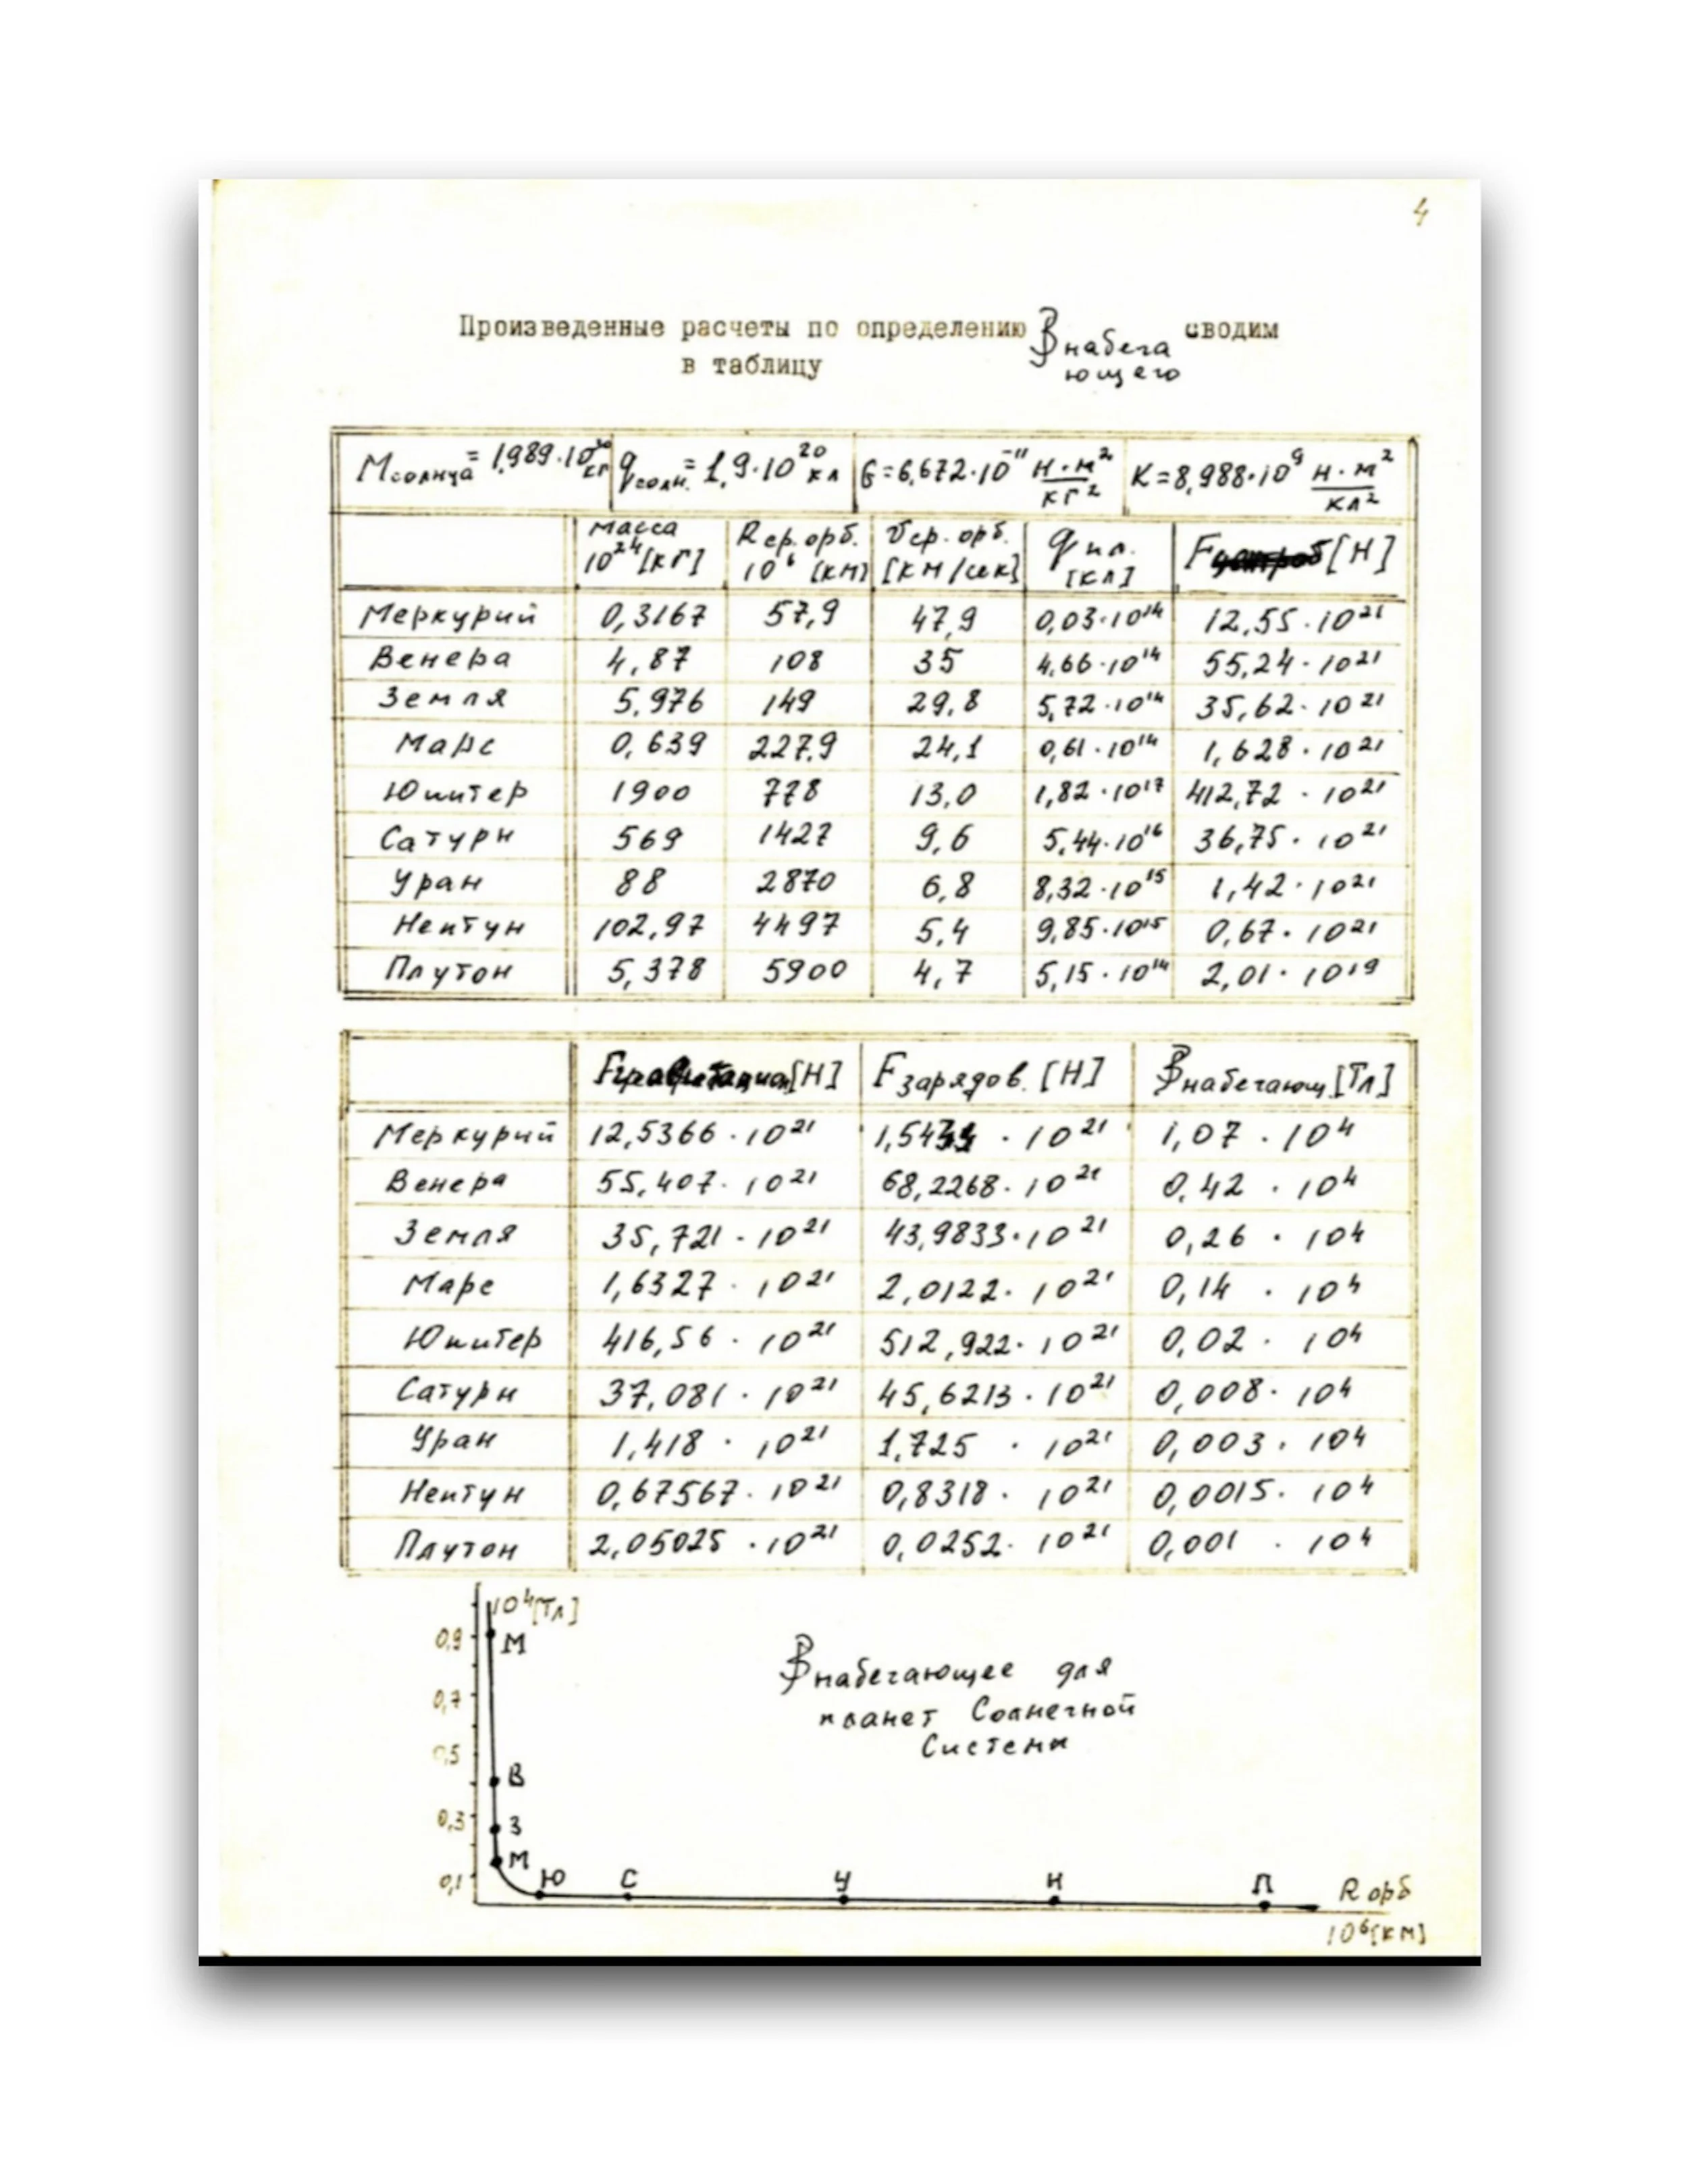 4
Произведенные расчеты по определению Bнабега сводим
в таблицу ющего
Mсолнца = 1,989·10³⁰ кг qсолн. = 1,9·10²⁰ кл G=6,672·10⁻¹¹ Н·м²/кг² K=8,988·10⁹ Н·м²/кл²
Масса Rср.орб. Vср.орб. qпл. F[Н]
10²⁴[кг] 10⁶ [км] [км/сек] [кл]
Меркурий 0,3167 57,9 47,9 0,03·10¹⁴ 12,55·10²¹
Венера 4,87 108 35 4,66·10¹⁴ 55,24·10²¹
Земля 5,976 149 29,8 5,72·10¹⁴ 35,62·10²¹
Марс 0,639 227,9 24,1 0,61·10¹⁴ 1,628·10²¹
Юпитер 1900 778 13,0 1,82·10¹⁷ 412,72·10²¹
Сатурн 569 1427 9,6 5,44·10¹⁶ 36,75·10²¹
Уран 88 2870 6,8 8,32·10¹⁵ 1,42·10²¹
Нептун 102,97 4497 5,4 9,85·10¹⁵ 0,67·10²¹
Плутон 5,378 5900 4,7 5,15·10¹⁴ 2,01·10¹⁹
Fгравитацион[Н] Fзарядов.[Н] Bнабегающ[Тл]
Меркурий 12,5366·10²¹ ·10²¹ 1,07·10⁴
Венера 55,407·10²¹ 68,2268·10²¹ 0,42·10⁴
Земля 35,721·10²¹ 43,9833·10²¹ 0,26·10⁴
Марс 1,6327·10²¹ 2,0122·10²¹ 0,14·10⁴
Юпитер 416,56·10²¹ 512,922·10²¹ 0,02·10⁴
Сатурн 37,081·10²¹ 45,6213·10²¹ 0,008·10⁴
Уран 1,418·10²¹ 1,725·10²¹ 0,003·10⁴
Нептун 0,67567·10²¹ 0,8318·10²¹ 0,0015·10⁴
Плутон 2,05025·10²¹ 0,0252·10²¹ 0,001·10⁴
10⁴[Тл]
0,9 М
Bнабегающее для
0,7 планет Солнечной
0,5 Системы
В
0,3 З
М
0,1 Ю С У Н П R орб
10⁶[км]